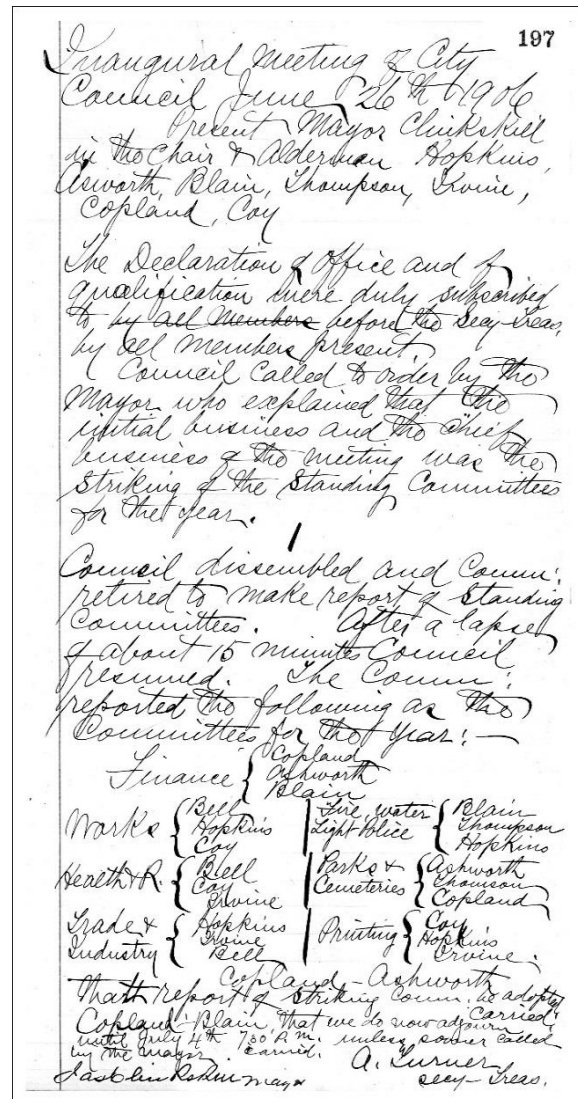 197
Inaugural meeting of City
Council June 26th 1906
Present Mayor Clinkskill
in the chair & Alderman Hopkins,
Asworth, Blain, Thompson, Irvine,
Copland, Coy
The Declaration of Office and of
qualification were duly subscribed
to by all Members before the Secy Treas.
by all members present.
Council called to order by the
Mayor who explained that the
initial business and the chief
business of the meeting was the
striking of the Standing Committees
for the year.
Council dissembled and Comm:
retired to make report of Standing
Committees. After a lapse
of about 15 minutes Council
resumed. The Comm:
reported the following as the
Committees for the Year:—
Finance { Copland
Ashworth
Blain
Works { Bell
Hopkins
Coy
Fire water
Light Police { Blain
Thompson
Hopkins
Health & R. { Bell
Coy
Irvine
Parks &
Cemeteries { Ashworth
Thomson
Copland
Trade &
Industry { Hopkins
Irvine
Bell
Printing { Coy
Hopkins
Irvine.
Copland – Ashworth
That report of Striking Comm. be adopted
Carried.
Copland–Blain, That we do now adjourn
until July 4th 7.30 P.M. unless sooner called
by the Mayor. Carried.
A. Turner
Secy– Treas.
Jas Clinkskill Mayor